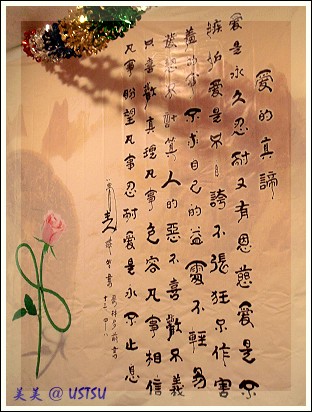 愛的真諦
愛是永久忍耐又有恩慈愛是不
嫉妒愛是不自誇不張狂不作害
羞的事不求自己的益處不輕易
發怒不計算人的惡不喜歡不義
只喜歡真理凡事包容凡事相信
凡事盼望凡事忍耐愛是永不止息
美美 @ USTSU